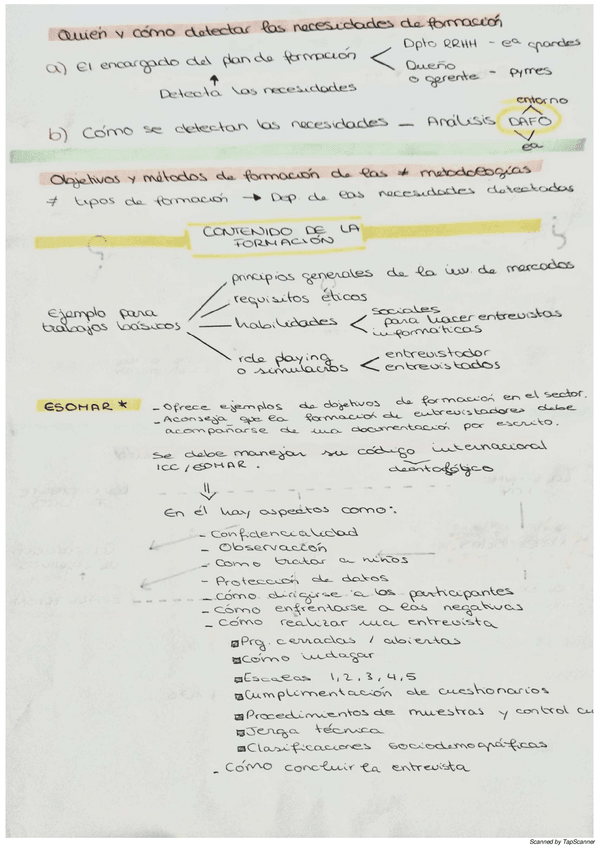 Quién y cómo detectar las necesidades de formación
a) El encargado del plan de formación < Dpto RRHH - ea grandes
Dueño o gerente - pymes
↑
Detecta las necesidades
entorno
b) Cómo se detectan las necesidades - Análisis DAFO
ea
Objetivos y métodos de formación de las ≠ metodologías
≠ tipos de formación → Dep. de las necesidades detectadas
CONTENIDO DE LA
FORMACIÓN
Ejemplo para
trabajos básicos
principios generales de la inv. de mercados
requisitos éticos
habilidades < sociales
para hacer entrevistas
informáticas
role playing
o simulacros < entrevistador
entrevistados
ESOMAR *
- Ofrece ejemplos de objetivos de formación en el sector.
- Aconseja que la formación de entrevistadores debe
acompañarse de una documentación por escrito.
Se debe manejar su código internacional
ICC/ESOMAR.
deontológico
⇓
En él hay aspectos como:
- Confidencialidad
- Observación
- Como tratar a niños
- Protección de datos
- cómo dirigirse a los participantes
- Cómo enfrentarse a las negativas
- Cómo realizar una entrevista
Prg. cerradas / abiertas
Cómo indagar
Escalas 1, 2, 3, 4, 5
Cumplimentación de cuestionarios
Procedimientos de muestras y control
Jerga técnica
Clasificaciones sociodemográficas
- Cómo concluir la entrevista
Scanned by TapScanner